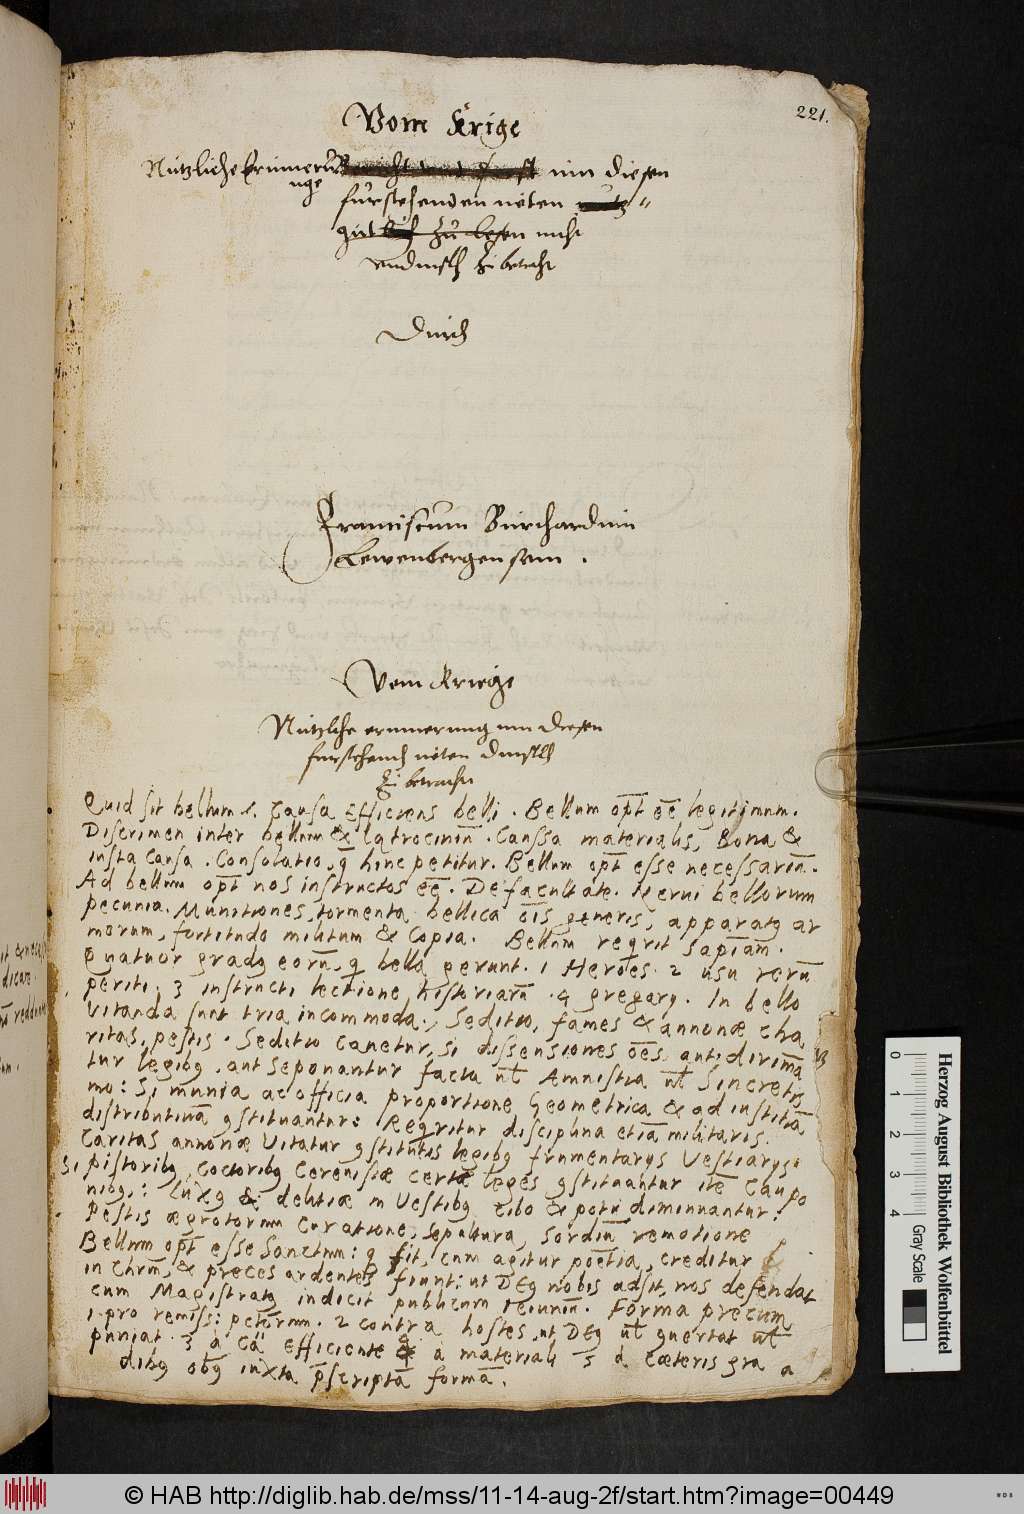 221.
Vom Krige
Nützliche Erinneru nge inn diesen
fürstehenden nöten
gut zu lesen nicht
vndinstlh zu betracht
Durch
Franciscum Burchardum
Lewenbergensem .
Vom Kriege
Nützlche erinnerung inn diesen
furstehendn nöten
zu betrachtn
Quid sit bellum. Causa Efficiens belli . Bellum opt̄ eē legitimum.
Discrimen inter bellum & latrociniū . Caussa materialis, Bona &
iusta Causa . Consolatio, q̄ hinc petitur. Bellum opt̄ esse necessariū.
Ad bellum opt̄ nos instructos eē. De facultate. Nerui bellorum
pecunia. Munitiones, tormenta bellica ōis generis, apparatꝯ ar
morum, fortitudo militum & Copia. Bellum reqrit sapīam.
Quatuor gradꝯ eorū, q bella gerunt. 1 Heroes. 2 usu rerū
periti. 3 instructi lectione historiarū . 4 gregarij. In bello
Vitanda sunt tria incommoda., Seditio, fames & annonæ cha
ritas, pestis. Seditio Cauetur, si dissensiones ōes antidirimā
tur legibꝯ. aut Seponantur facta ut̄ Amnistia ut̄ Sincretis
mo: Si munia ac officia proportione Geometrica & ad iustitiā
distributiuā ꝯstituantur: Reqritur disciplina etiā militaris.
Caritas annonæ Vitatur ꝯstitutis legibꝯ frumentarijs Vestiarijs
Si pistoribꝯ, Coctoribꝯ Cereuisiæ certæ leges ꝯstituantur itē Caupo
nibꝯ: Luxꝯ & delitiæ in Vestibꝯ cibo & potu diminuantur.
Pestis ægrotorum Curatione, sepultura, Sordiū remotione
Bellum opt̄ esse Sanctum: q fit, cum agitur poētia, creditur
in Chrm̄, & preces ardentes fiunt: ut DEꝯ nobis adsit, nos defendat
cum Magistratꝯ indicit publicum ieiuniū. Forma precum
1. pro remiss: petōrum. 2 contra hostes, ut DEꝯ ut̄ ꝯuertat ut̄
puniat. 3 à Cā Efficiente & à materiali 5 à Cæteris gra a
dibꝯ obꝯ iuxta p̄scriptā formā.
Herzog August Bibliothek Wolfenbüttel
0 1 2 3 4
Gray Scale
© HAB http://diglib.hab.de/mss/11-14-aug-2f/start.htm?image=00449